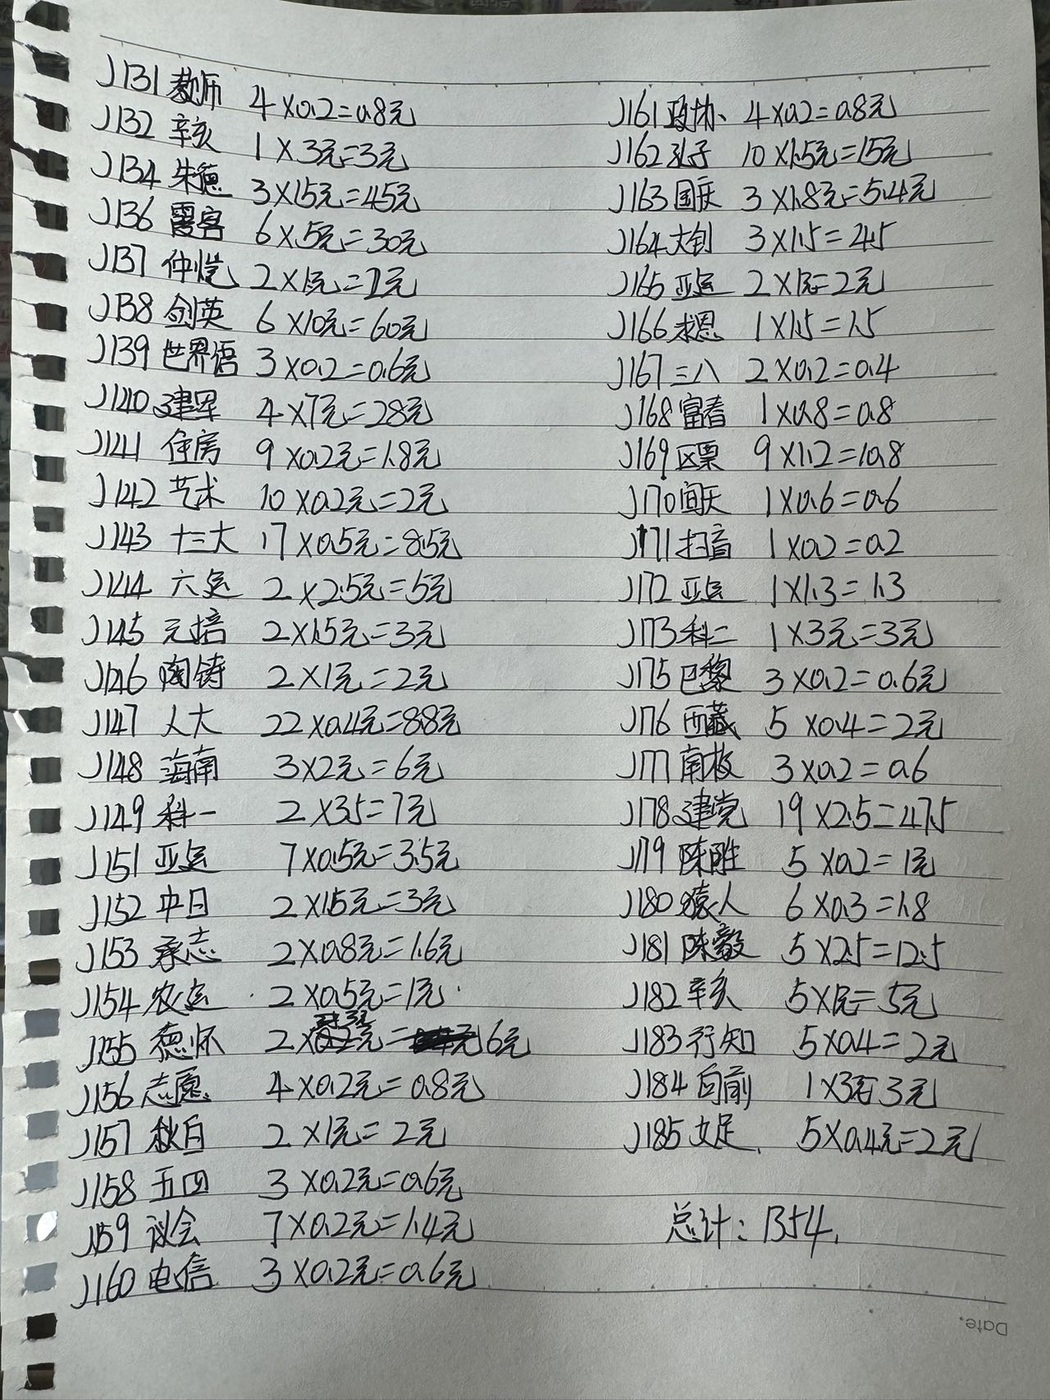 J131 教师 4×0.2=0.8元
J132 辛亥 1×3元=3元
J134 朱德 3×1.5元=4.5元
J136 霞客 6×.5元=30元
J137 仲恺 2×1元=2元
J138 剑英 6×10元=60元
J139 世界语 3×0.2=0.6元
J140 建军 4×7元=28元
J141 住房 9×0.2元=1.8元
J142 艺术 10×0.2元=2元
J143 十三大 17×0.5元=8.5元
J144 六运 2×2.5元=5元
J145 元培 2×1.5元=3元
J146 陶铸 2×1元=2元
J147 人大 22×0.4元=8.8元
J148 海南 3×2元=6元
J149 科一 2×3.5=7元
J151 亚运 7×0.5元=3.5元
J152 中日 2×1.5元=3元
J153 承志 2×0.8元=1.6元
J154 农运 2×0.5元=1元
J155 德怀 2× =6元
J156 志愿 4×0.2元=0.8元
J157 秋白 2×1元=2元
J158 五四 3×0.2元=0.6元
J159 议会 7×0.2元=1.4元
J160 电信 3×0.2元=0.6元
J161 政协 4×0.2=0.8元
J162 孔子 10×1.5元=15元
J163 国庆 3×1.8元=5.4元
J164 大创 3×1.5=4.5
J165 亚运 2×1元=2元
J166 求恩 1×1.5=1.5
J167 三八 2×0.2=0.4
J168 富春 1×0.8=0.8
J169 区票 9×1.2=10.8
J170 间天 1×0.6=0.6
J171 扫盲 1×0.2=0.2
J172 亚运 1×1.3=1.3
J173 科二 1×3元=3元
J175 巴黎 3×0.2=0.6元
J176 西藏 5×0.4=2元
J177 南极 3×0.2=0.6
J178 建党 19×2.5=47.5
J179 陈胜 5×0.2=1元
J180 猿人 6×0.3=1.8
J181 陈毅 5×2.5=12.5
J182 辛亥 5×1元=5元
J183 行知 5×0.4=2元
J184 向前 1×3元=3元
J185 女足 5×0.4元=2元
总计:1354.